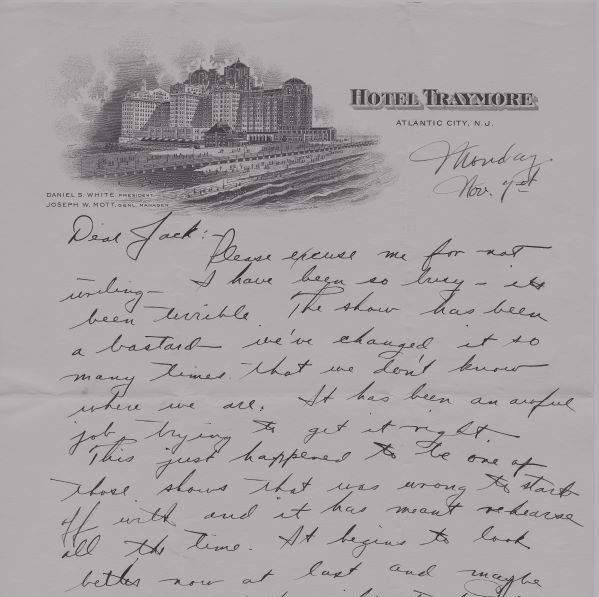 HOTEL TRAYMORE
ATLANTIC CITY, N. J.
DANIEL S. WHITE, PRESIDENT
JOSEPH W. MOTT, GENL. MANAGER
Monday
Nov.
Dear Jack:-
Please excuse me for not
writing - I have been so busy - its
been terrible The show has been
a bastard we've changed it so
many times that we don't know
where we are. It has been an awful
job trying to get it right.
This just happened to be one of
those shows that was wrong to start
off with and it has meant rehearse
all the time. It begins to look
better now at last and maybe